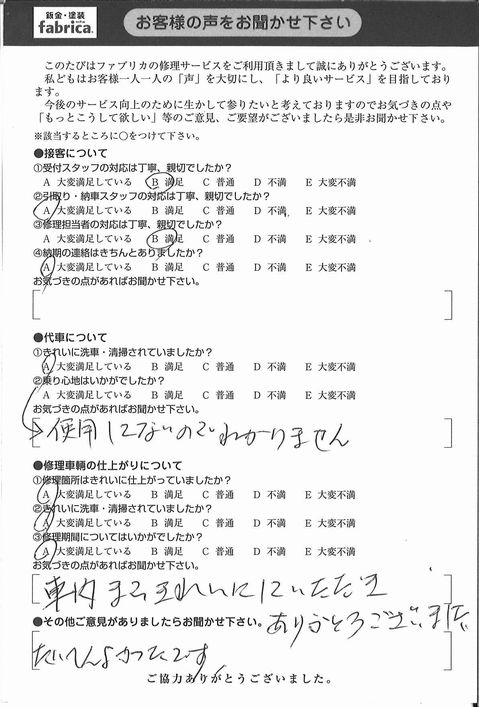 鈑金・塗装
fabrica.
お客様の声をお聞かせ下さい
このたびはファブリカの修理サービスをご利用頂きまして誠にありがとうございます。
私どもはお客様一人一人の「声」を大切にし、「より良いサービス」を目指しており
ます。
今後のサービス向上のために生かして参りたいと考えておりますのでお気づきの点や
「もっとこうして欲しい」等のご意見、ご要望がございましたら是非お聞かせ下さい。
※該当するところに○をつけて下さい。
●接客について
①受付スタッフの対応は丁寧、親切でしたか?
A 大変満足している B 満足 C 普通 D 不満 E 大変不満
②引取り・納車スタッフの対応は丁寧、親切でしたか?
A 大変満足している B 満足 C 普通 D 不満 E 大変不満
③修理担当者の対応は丁寧、親切でしたか?
A 大変満足している B 満足 C 普通 D 不満 E 大変不満
④納期の連絡はきちんとありましたか?
A 大変満足している B 満足 C 普通 D 不満 E 大変不満
お気づきの点があればお聞かせ下さい。
●代車について
①きれいに洗車・清掃されていましたか?
A 大変満足している B 満足 C 普通 D 不満 E 大変不満
②乗り心地はいかがでしたか?
A 大変満足している B 満足 C 普通 D 不満 E 大変不満
お気づきの点があればお聞かせ下さい。
使用してないのでわかりません
●修理車輌の仕上がりについて
①修理箇所はきれいに仕上がっていましたか?
A 大変満足している B 満足 C 普通 D 不満 E 大変不満
②きれいに洗車・清掃されていましたか?
A 大変満足している B 満足 C 普通 D 不満 E 大変不満
③修理期間についてはいかがでしたか?
A 大変満足している B 満足 C 普通 D 不満 E 大変不満
お気づきの点があればお聞かせ下さい。
車内まできれいにしていただき
ありがとうございました
●その他ご意見がありましたらお聞かせ下さい。
たいへんよかったです
ご協力ありがとうございました。